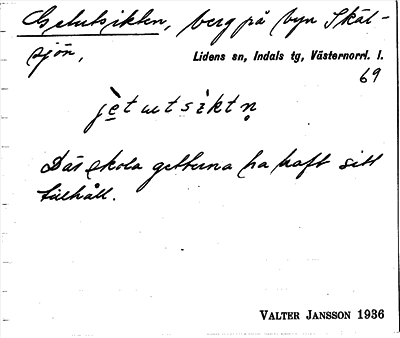 Getutsikten, berg på byn Skäl-
sjön,
Lidens sn, Indals tg, Västernorrl. l.
69
jètutsìktn̥
Där skola getterna ha haft sitt
tillhåll.
VALTER JANSSON 1936